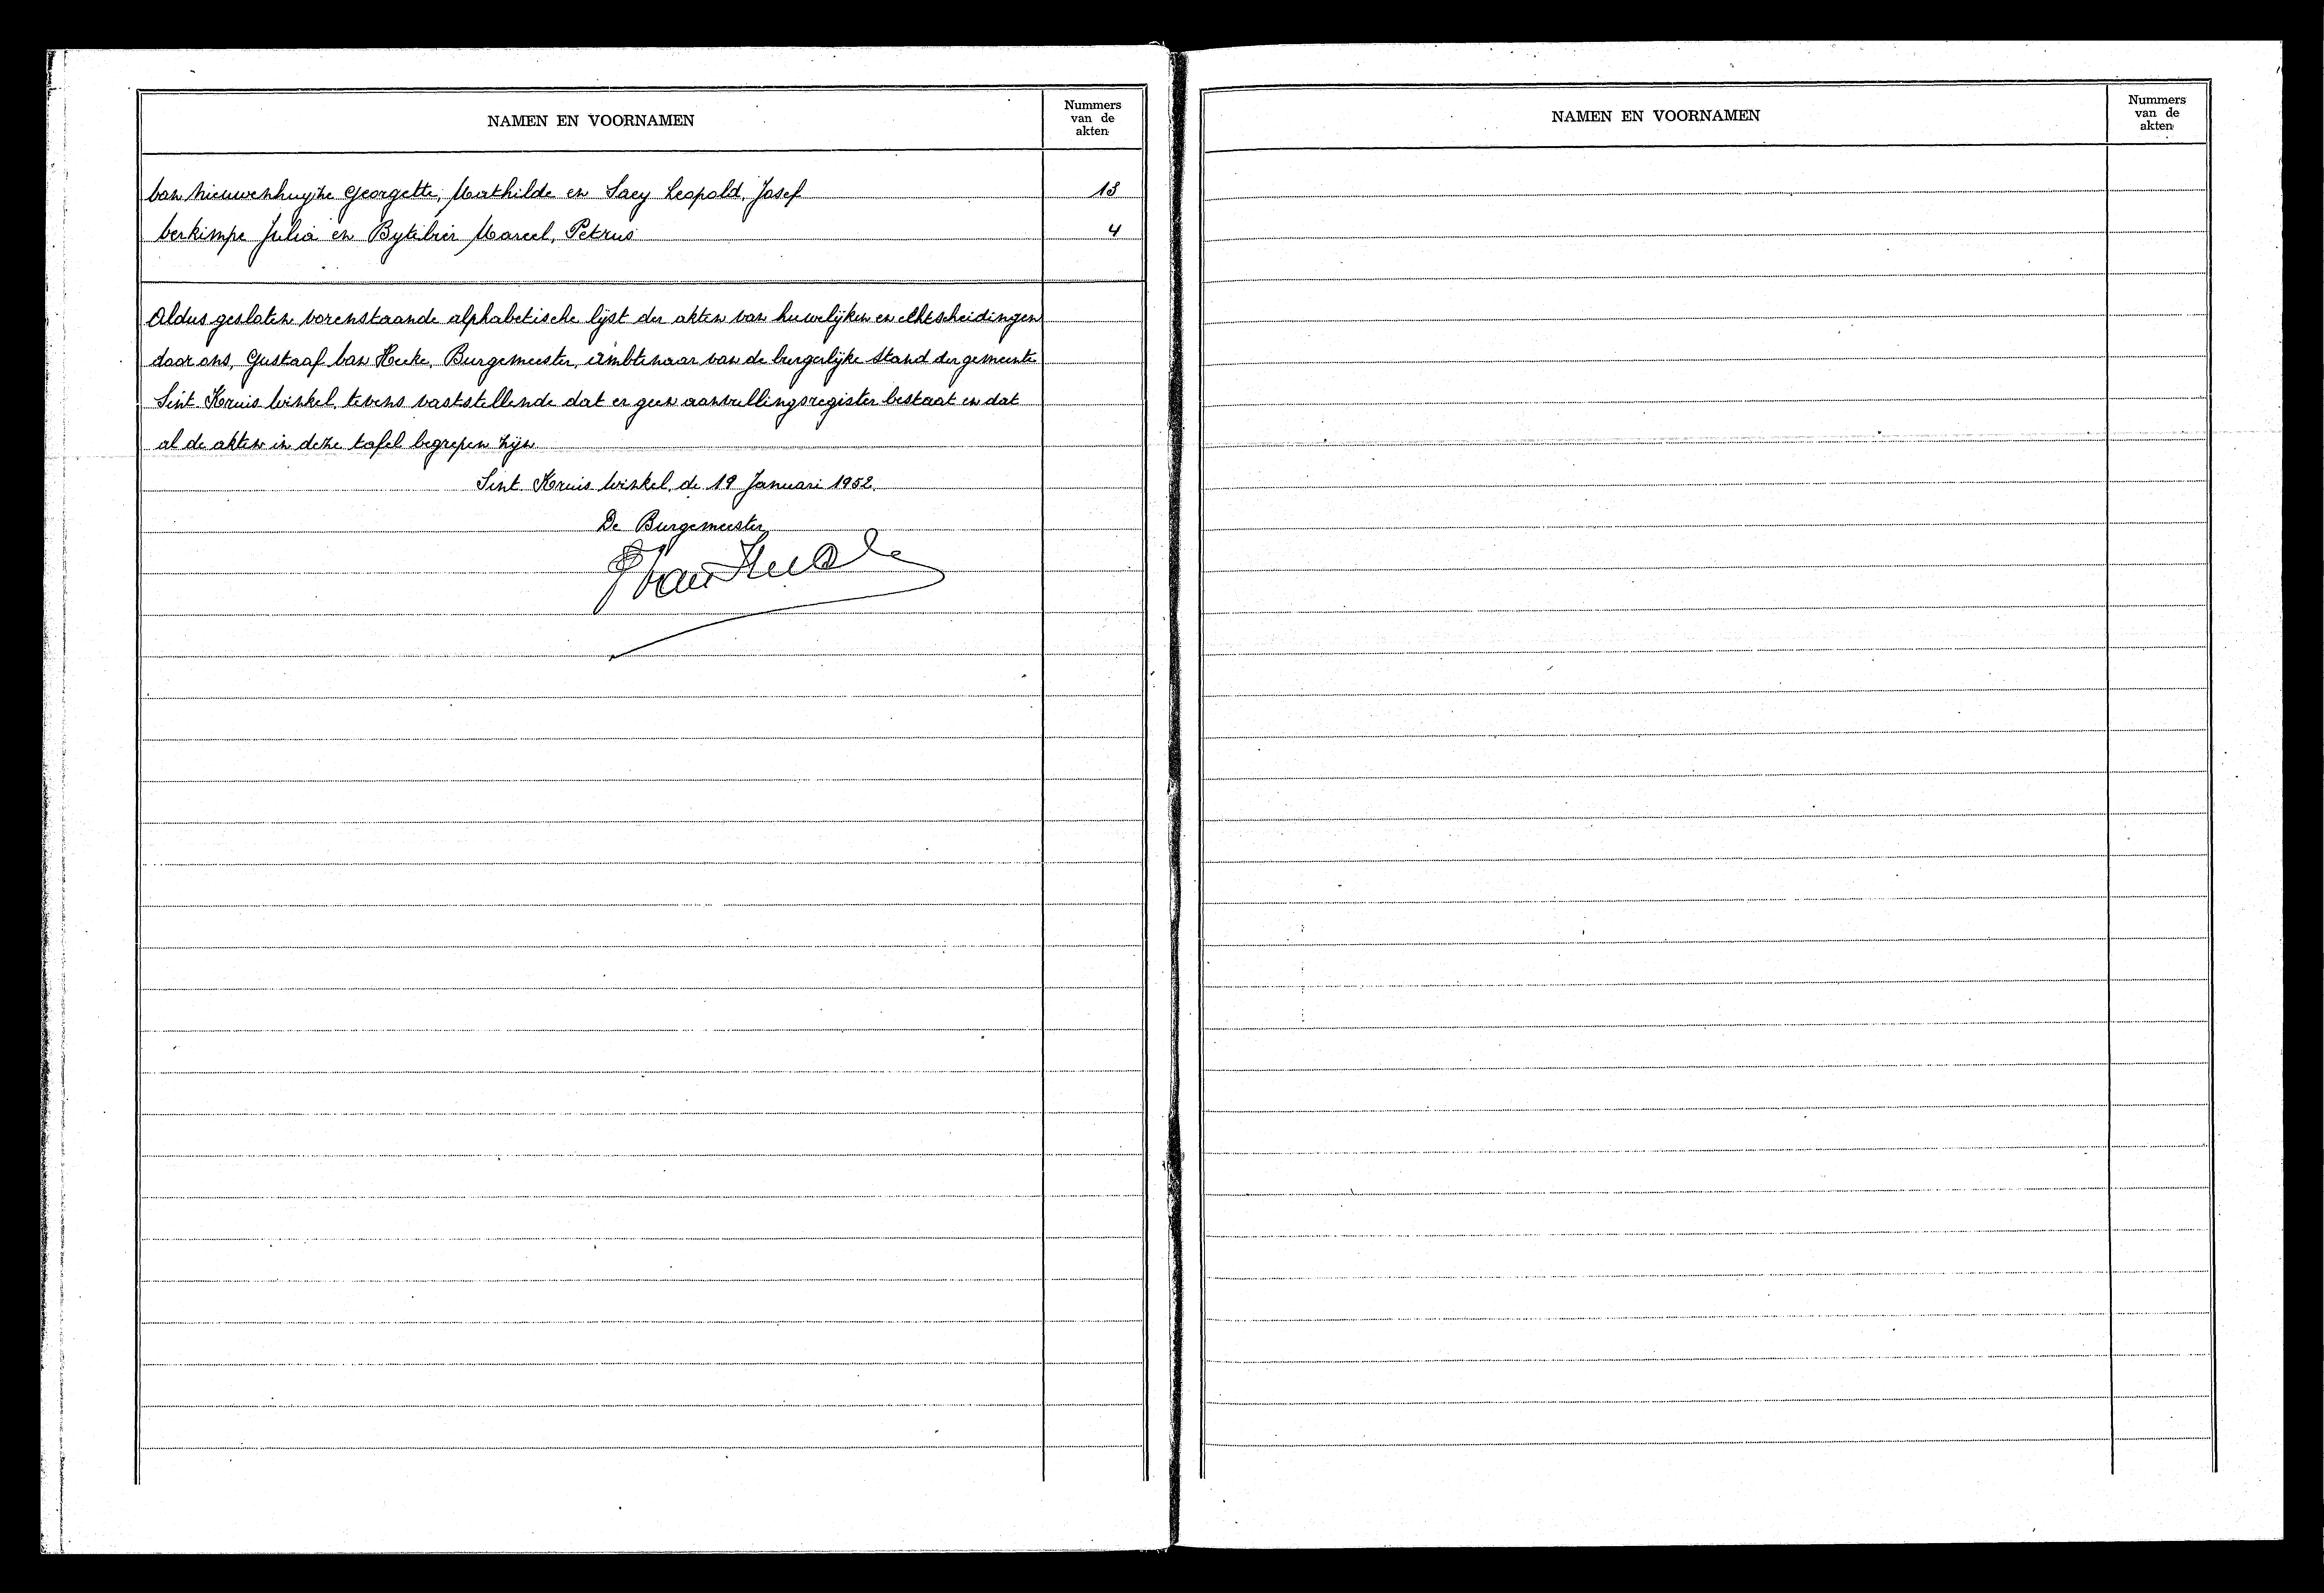 NAMEN EN VOORNAMEN
Nummers
van de
akten
Van Nieuwenhuyze Georgette, Mathilde en Saey Leopold, Josef 13
Verkimpe Julia en Bytebier Marcel, Petrus 4
Aldus gesloten vorenstaande alphabetische lijst der akten van huwelijken en echtscheidingen
door ons, Gustaaf Van Hecke, Burgemeester, Ambtenaar van de burgerlijke stand der gemeente
Sint Kruis Winkel, tevens vaststellende dat er geen aanvullingsregister bestaat en dat
al de akten in deze tafel begrepen zijn
Sint Kruis Winkel, de 19 Januari 1952.
De Burgemeester,
NAMEN EN VOORNAMEN
Nummers
van de
akten